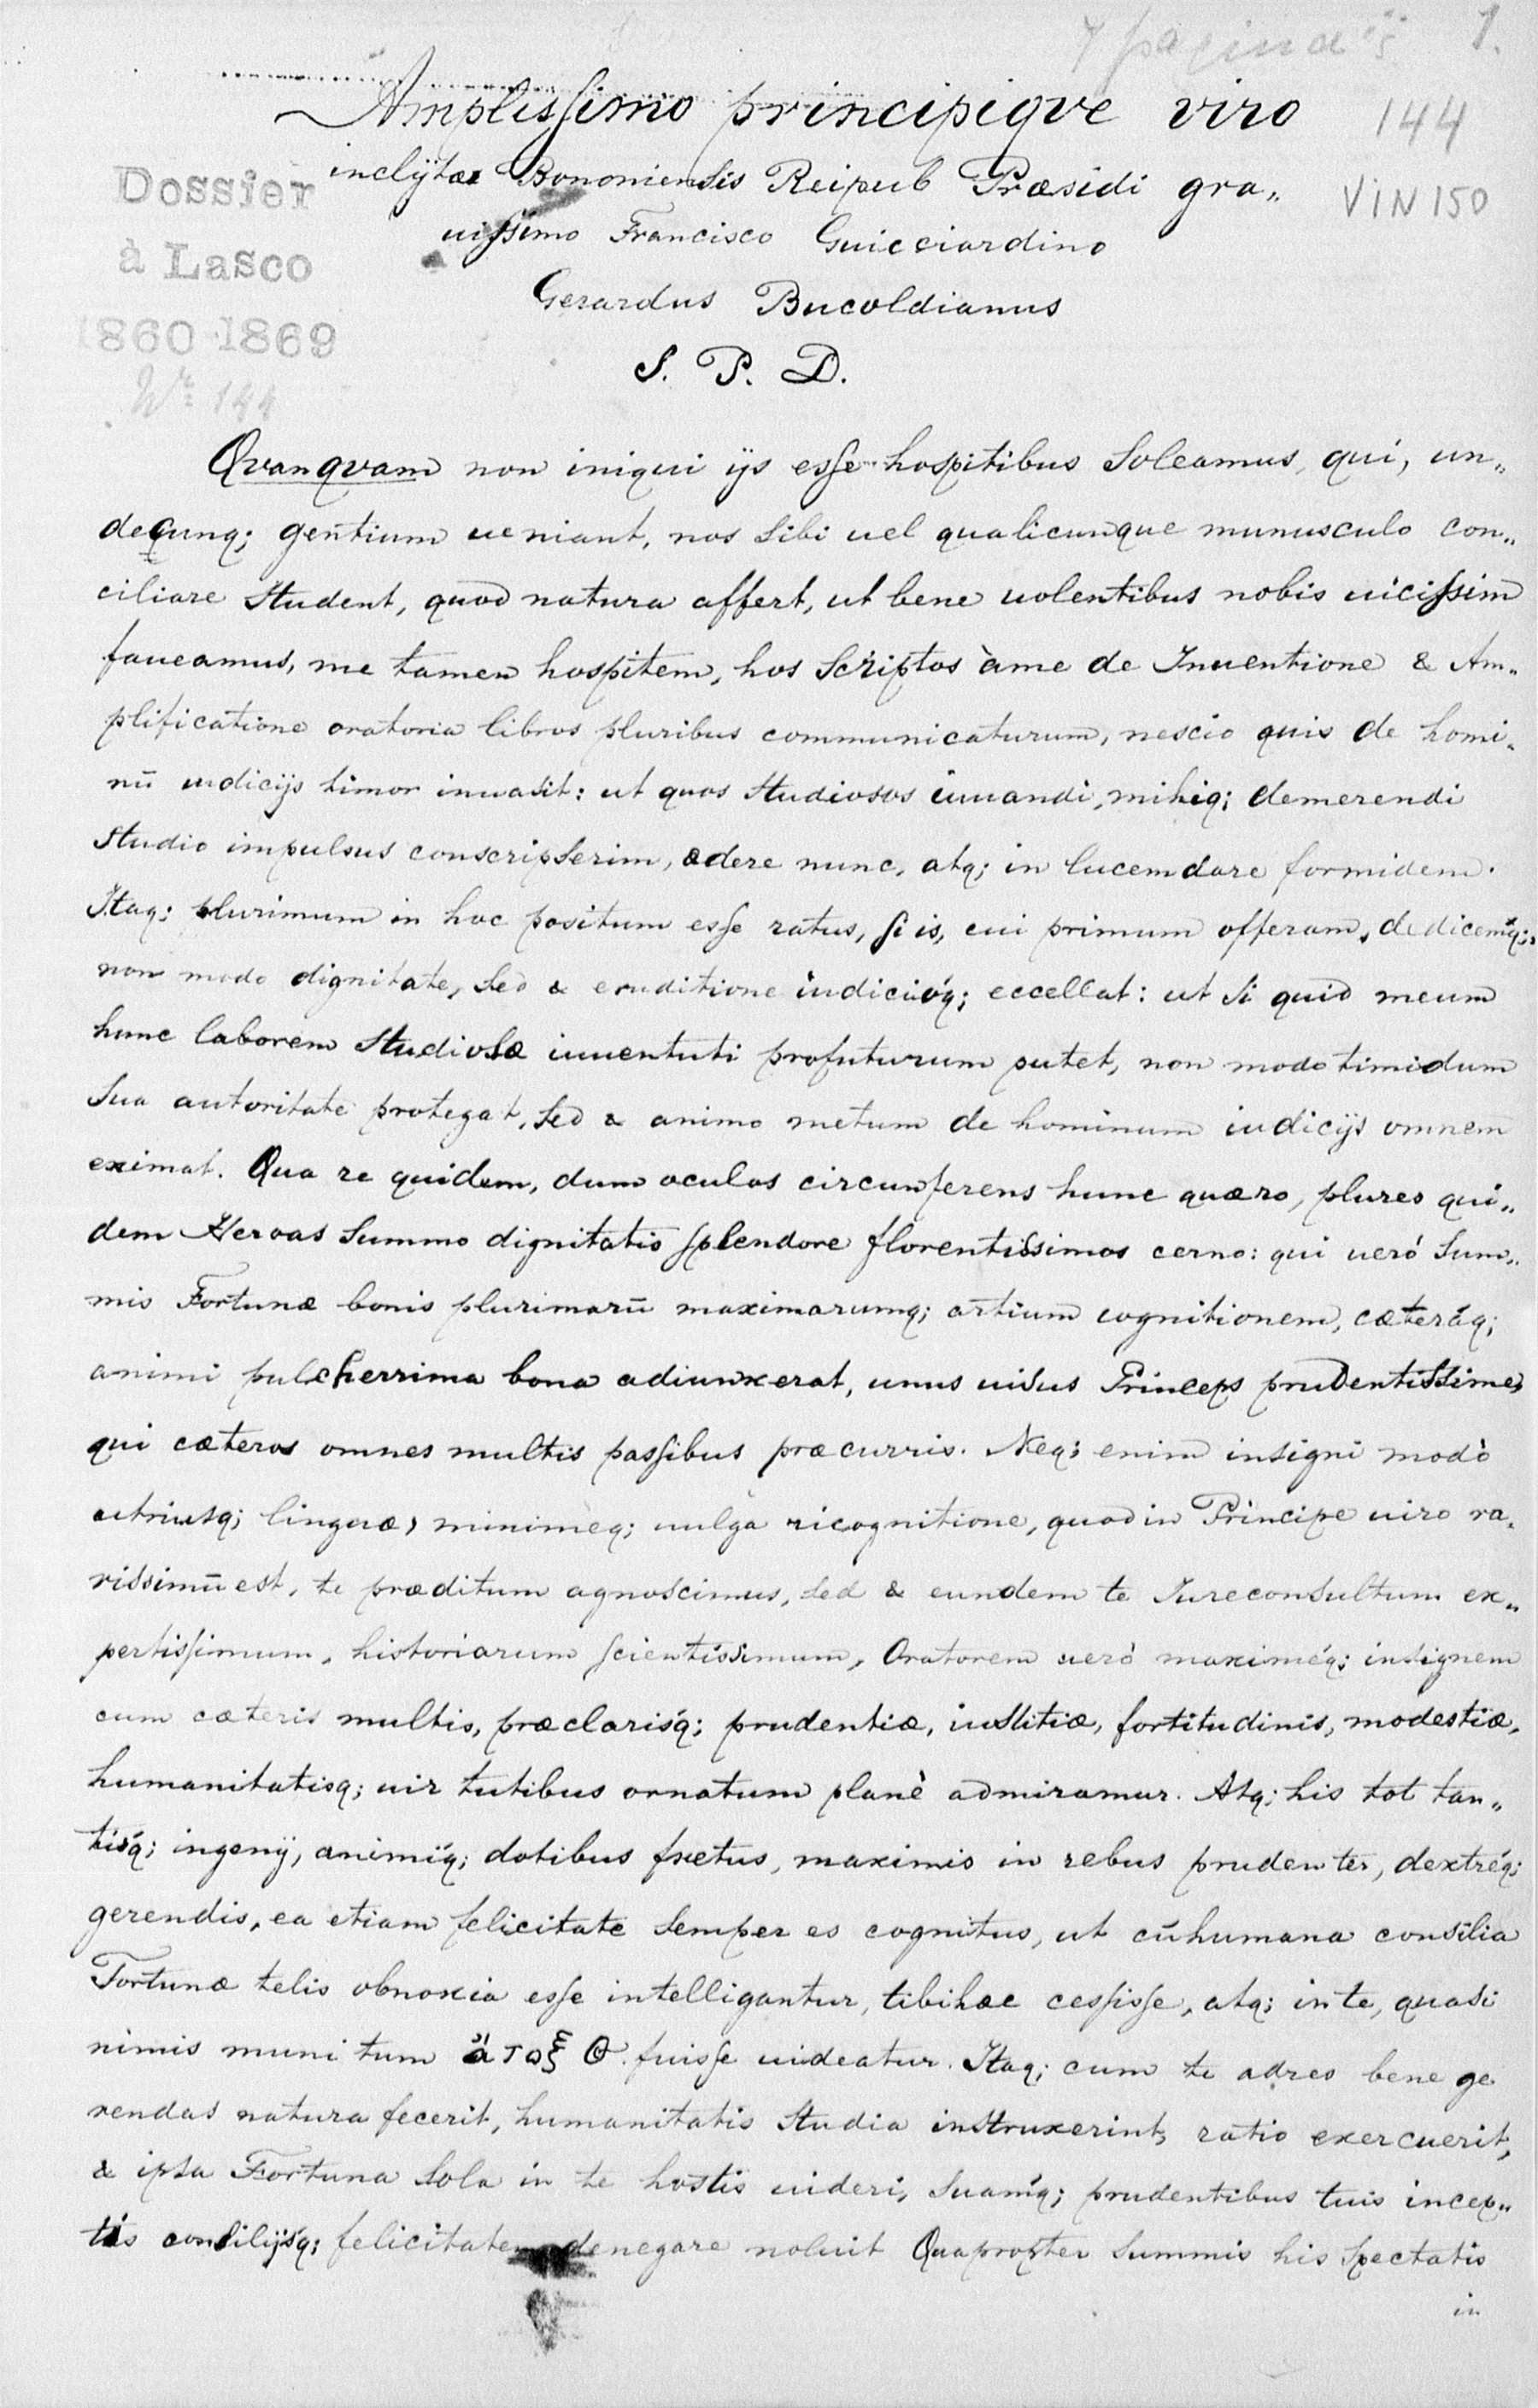 7 pagina's 1.
Amplissimo principiqve viro
144
inclÿtæ Bononiensis Reipub Præsidi gra„
VIN 150
Dossier
uissimo Francisco Guicciardino
à Lasco
Gerardus Bucoldianus
1860-1869
S. P. D.
Nr. 144
Qvanqvam non iniqui ijs esse hospitibus soleamus, qui, un„
deqcunq; gentium ueniant, nos sibi uel qualicunque munusculo con„
ciliare student, quod natura affert, ut bene uolentibus nobis uicissim
faueamus, me tamen hospitem, hos scriptos àme de Inuentione & Am„
plificatione oratoria libros pluribus communicaturum, nescio quis de homi„
nū iudicijs timor inuasit: ut quos studiosos iuuandi, mihiq; demerendi
studio impulsus conscripserim, ædere nunc, atq; in lucem dare formidem.
Itaq; plurimum in hoc positum esse ratus, si is, cui primum offeram, dedicemq́;,
non modo dignitate, sed & eruditione iudicióq; eccellat: ut si quid meum
hunc laborem studiosæ iuuentuti profuturum putet, non modo timidum
sua autoritate protegat, sed & animo metum de hominum iudicijs omnem
eximat. Qua re quidem, dum oculos circumferens hunc quæro, plures qui„
dem Heroas summo dignitatis splendore florentissimos cerno: qui ueró sum„
mis Fortunæ bonis plurimarū maximarumq; artium cognitionem, cæteráq;
animi pulcherrima bona adiunxerat, unus uisus Princeps prudentissime,
qui cæteros omnes multis passibus præcurris. Neq; enim insigni modò
utriusq; linguæ, minimèq; uulga ricognitione, quod in Principe uiro ra„
rissimū est, te præditum agnoscimus, sed & eundem te Iureconsultum ex„
pertissimum, historiarum scientissimum, Oratorem uerò maximéq; insignem
cum cæteris multis, præclarisq́; prudentiæ, iustitiæ, fortitudinis, modestiæ,
humanitatisq; uir tutibus ornatum planè admiramur. Atq; his tot tan„
tisq́; ingenij, animiq́; dotibus fretus, maximis in rebus prudenter, dextréq;
gerendis, ea etiam felicitate semper es cognitus, ut cū humana consilia
Fortunæ telis obnoxia esse intelligantur, tibi hæc cessisse, atq; in te, quasi
nimis muni tum ἄτοξ Θ. fuisse uideatur. Itaq; cum te ad res bene ge
rendas natura fecerit, humanitatis studia instruxerint, ratio exercuerit,
& ipsa Fortuna sola in te hostis uideri, suamq́; prudentibus tuis incep„
tis consilijsq́; felicitatem denegare noluit Quapropter summis his spectatis
in